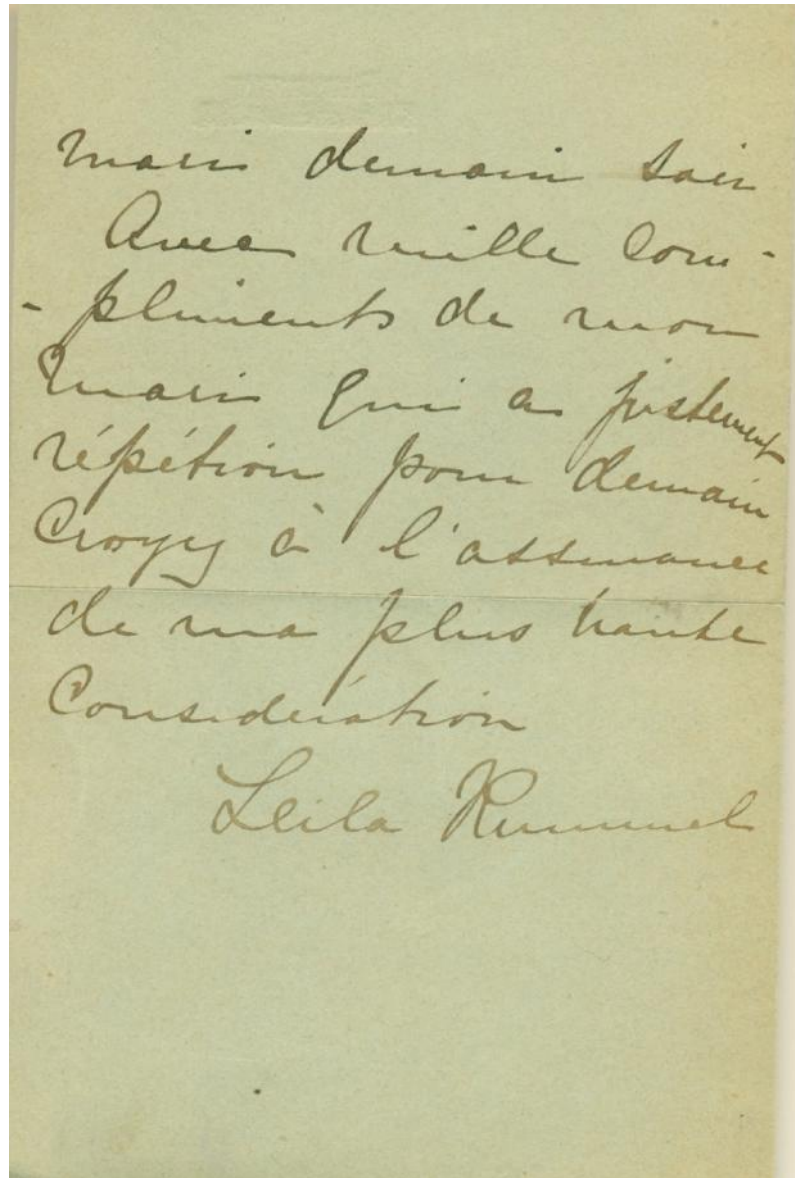 mari demain soir
Avec mille com-
- pliments de mon
mari qui a justement
répétition pour demain
Croyez à l'assurance
de ma plus haute
Considération
Leila Rummel